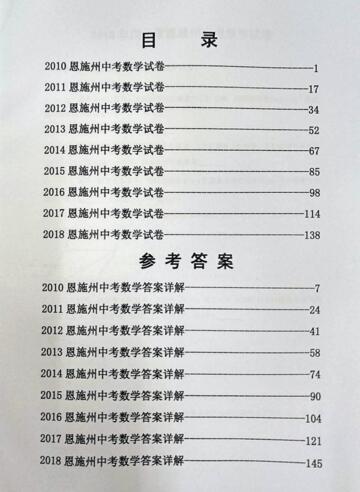 目 录
2010 恩施州中考数学试卷————————————1
2011 恩施州中考数学试卷————————————17
2012 恩施州中考数学试卷————————————34
2013 恩施州中考数学试卷————————————52
2014 恩施州中考数学试卷————————————67
2015 恩施州中考数学试卷————————————85
2016 恩施州中考数学试卷————————————98
2017 恩施州中考数学试卷————————————114
2018 恩施州中考数学试卷————————————138
参 考 答 案
2010 恩施州中考数学答案详解———————————7
2011 恩施州中考数学答案详解———————————24
2012 恩施州中考数学答案详解———————————41
2013 恩施州中考数学答案详解———————————58
2014 恩施州中考数学答案详解———————————74
2015 恩施州中考数学答案详解———————————90
2016 恩施州中考数学答案详解———————————104
2017 恩施州中考数学答案详解———————————121
2018 恩施州中考数学答案详解———————————145